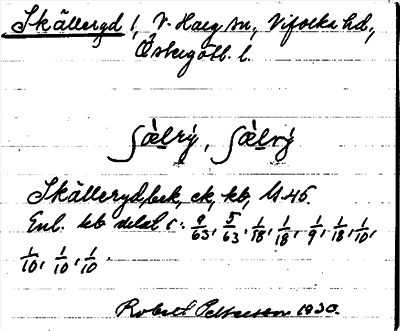 Skälleryd 1, V. Harg sn, Vifolka hd,
Östergötl. l.
ʃæ̀lrý, ʃæ̀lvý
Skälleryd, bek, ek, kb, M 45.
Enl. kb delat i: 9/63, 5/63, 1/18, 1/18, 1/9, 1/18, 1/10,
1/10, 1/10, 1/10.
Robert Pettersson 1930.